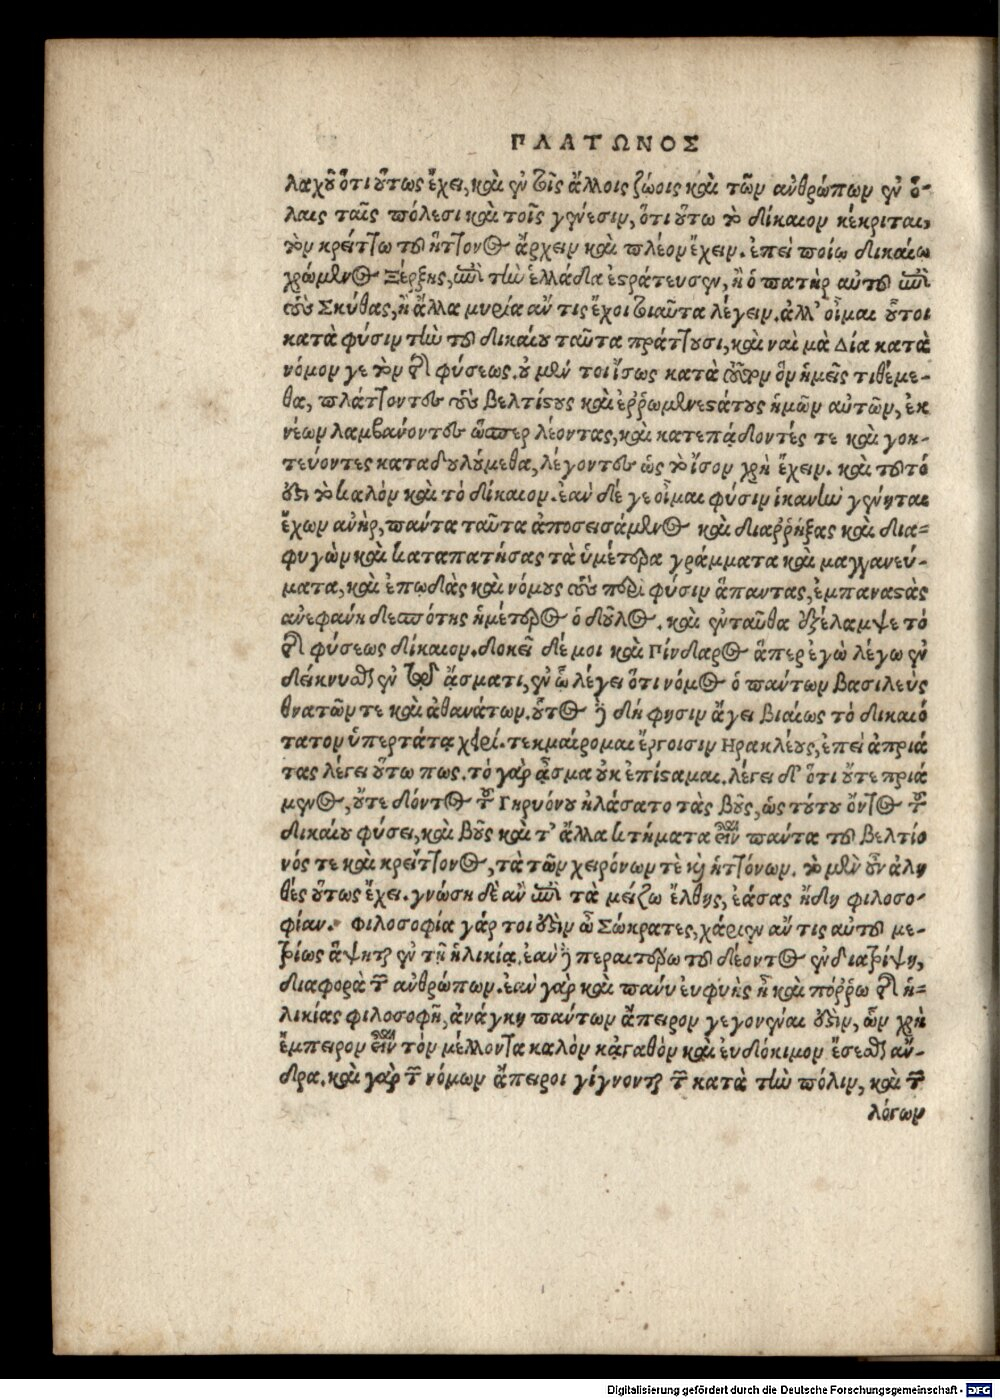 ΠΛΑΤΩΝΟΣ
λαχοῦ ὅτι οὕτως ἔχει, καὶ ἐν τοῖς ἄλλοις ζώοις καὶ τῶν ἀνθρώπων ἐν ὅ-
λαις ταῖς πόλεσι καὶ τοῖς γένεσιν, ὅτι οὕτω τὸ δίκαιον κέκριται,
τὸν κρείττω τοῦ ἥττονος ἄρχειν καὶ πλέον ἔχειν. ἐπεὶ ποίῳ δικαίῳ
χρώμενος Ξέρξης, ἐπὶ τὴν ἑλλάδα ἐστράτευσεν, ἢ ὁ πατὴρ αὐτοῦ ἐπὶ
τοὺς Σκύθας, ἢ ἄλλα μυρία ἄν τις ἔχοι τοιαῦτα λέγειν. ἀλλ' οἶμαι οὗτοι
κατὰ φύσιν τὴν τοῦ δικαίου ταῦτα πράττουσι, καὶ ναὶ μὰ Δία κατὰ
νόμον γε τὸν τῆς φύσεως. οὐ μέν τοι ἴσως κατὰ τοῦτον ὃν ἡμεῖς τιθέμε-
θα, πλάττοντες τοὺς βελτίστους καὶ ἐῤῥωμενεστάτους ἡμῶν αὐτῶν, ἐκ
νέων λαμβάνοντες ὥσπερ λέοντας, καὶ κατεπᾴδοντές τε καὶ γοη-
τεύοντες καταδουλούμεθα, λέγοντες ὡς τὸ ἴσον χρὴ ἔχειν. καὶ τοῦτό
ἐστι τὸ καλὸν καὶ τὸ δίκαιον. ἐὰν δέ γε οἶμαι φύσιν ἱκανὴν γένηται
ἔχων ἀνὴρ, πάντα ταῦτα ἀποσεισάμενος καὶ διαῤῥήξας καὶ δια-
φυγὼν καὶ καταπατήσας τὰ ὑμέτερα γράμματα καὶ μαγγανεύ-
ματα, καὶ ἐπωδὰς καὶ νόμους τοὺς παρὰ φύσιν ἅπαντας, ἐμπαναστὰς
ἀνεφάνη δεσπότης ἡμέτερος ὁ δοῦλος. καὶ ἐνταῦθα ἐξέλαμψε τὸ
τῆς φύσεως δίκαιον. δοκεῖ δέ μοι καὶ Πίνδαρος ἅπερ ἐγὼ λέγω ἐν
δείκνυσθαι ἐν τῷ ᾄσματι, ἐν ᾧ λέγει ὅτι νόμος ὁ πάντων βασιλεὺς
θνατῶν τε καὶ ἀθανάτων. οὗτος δὲ δή φησιν ἄγει βιαίως τὸ δικαιό
τατον ὑπερτάτᾳ χειρί. τεκμαίρομαι ἔργοισιν Ηρακλέους, ἐπεὶ ἀπριά
τας λέγει οὕτω πως. τὸ γὰρ ᾆσμα οὐκ ἐπίσταμαι. λέγει δ' ὅτι οὔτε πριά
μενος, οὔτε δόντος τοῦ Γηρυόνου ἠλάσατο τὰς βοῦς, ὡς τούτου ὄντος τοῦ
δικαίου φύσει, καὶ βοῦς καὶ τ' ἄλλα κτήματα εἶναι πάντα τοῦ βελτίο
νός τε καὶ κρείττονος, τὰ τῶν χειρόνων τὲ καὶ ἡττόνων. τὸ μὲν οὖν ἀλη
θὲς οὕτως ἔχει. γνώσῃ δὲ ἂν ἐπὶ τὰ μείζω ἔλθῃς, ἐάσας ἤδη φιλοσο-
φίαν. Φιλοσοφία γάρ τοι ἐστὶν ὦ Σώκρατες, χάριεν ἄν τις αὐτοῦ με-
τρίως ἅψηται ἐν τῇ ἡλικίᾳ. ἐὰν δὲ περαιτέρω τοῦ δέοντος ἐνδιατρίψῃ,
διαφορὰ τῶν ἀνθρώπων. ἐὰν γὰρ καὶ πάνυ εὐφυὴς ᾖ καὶ πόῤῥω τῆς ἡ-
λικίας φιλοσοφῇ, ἀνάγκη πάντων ἄπειρον γεγονέναι ἐστὶν, ὧν χρὴ
ἔμπειρον εἶναι τὸν μέλλοντα καλὸν κἀγαθὸν καὶ εὐδόκιμον ἔσεσθαι ἄν-
δρα. καὶ γὰρ τῶν νόμων ἄπειροι γίγνονται τῶν κατὰ τὴν πόλιν, καὶ τῶν
λόγων
Digitalisierung gefördert durch die Deutsche Forschungsgemeinschaft - DFG